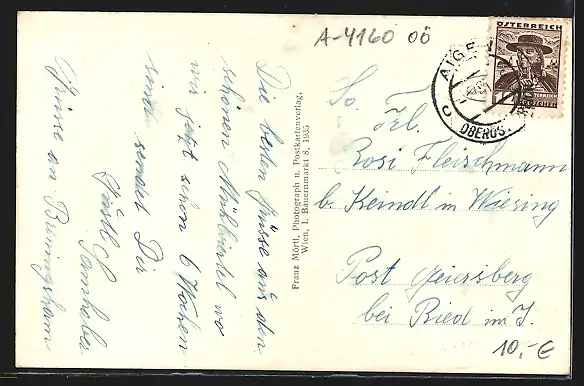 A-4160 OÖ
ÖSTERREICH
AIGEN
OBERÖS.
Die besten Grüsse aus den
schönen Mühlviertel wo
wir jetzt schon 6 Wochen
sind sendet Dir
Gustl
Grüsse an
Franz Mörtl, Photograph u. Postkartenverlag,
Wien, I. Bauernmarkt 8, 1935
So.
Frl.
Rosi Fleischmann
b. Keindl in Wiesing
Post Geiersberg
bei Ried im I.
10,-€